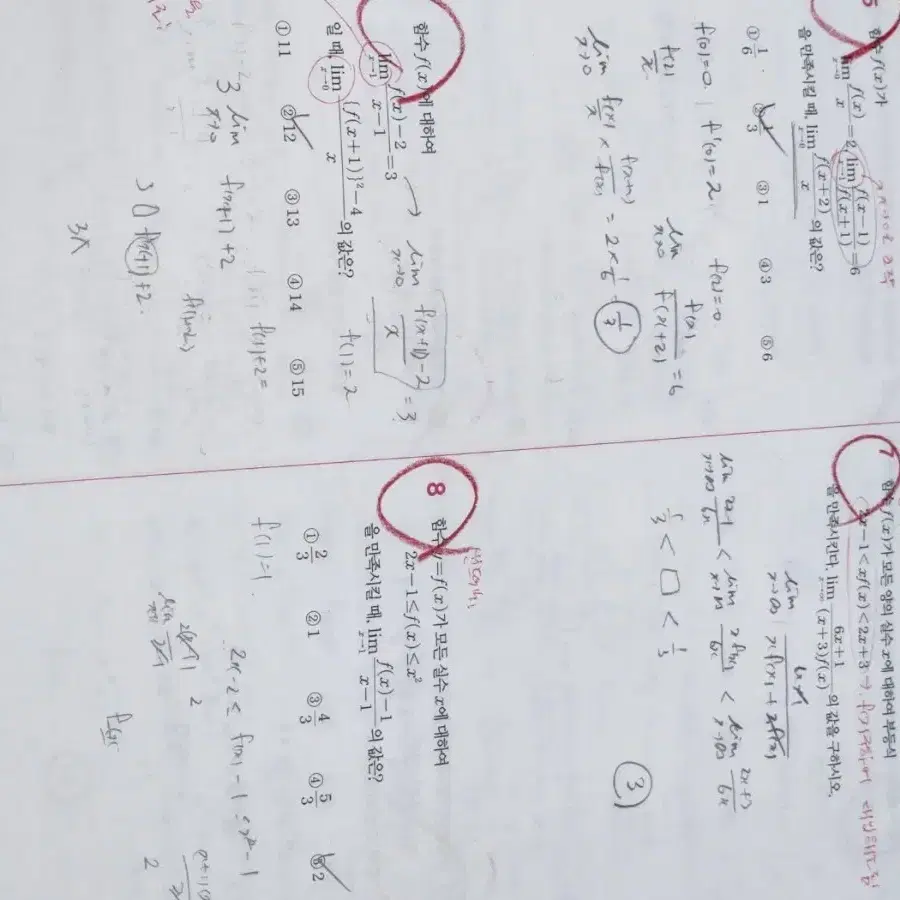 함수 f(x)가
lim x→0 f(x)/x = 2, lim x→1 f(x-1)/f(x+1) = 6
을 만족시킬 때, lim x→0 f(x+2)/x 의 값은?
① 1/6 ② 1/3 ③ 1 ④ 3 ⑤ 6
f(0)=0 f'(0)=2 f(2)=0
lim x→0 f(x)/f(x+2) = 6
lim x→0 f(x)/x × f(x+2)/f(x) = 2×1/6
1/3
함수 f(x)에 대하여
lim x→1 (f(x)-2)/(x-1) = 3
일 때, lim x→0 ({f(x+1)}²-4)/x 의 값은?
① 11 ② 12 ③ 13 ④ 14 ⑤ 15
lim x→0 (f(x+1)-2)/x = 3
f(1)=2
3 lim x→0 f(x+1)+2
f(1)+2=
3x
7 함수 f(x)가 모든 양의 실수 x에 대하여 부등식
2x-1<xf(x)<2x+3
을 만족시킨다. lim x→∞ (6x+1)/((x+3)f(x)) 의 값을 구하시오.
lim x→∞ (6x+1)/(xf(x)+3f(x))
lim x→∞ (2x-1)/6x < lim x→∞ xf(x)/6x < lim x→∞ (2x+3)/6x
1/3 < □ < 1/3
3
8 함수 y=f(x)가 모든 실수 x에 대하여
2x-1≤f(x)≤x²
을 만족시킬 때, lim x→1 (f(x)-1)/(x-1) 의 값은?
① 2/3 ② 1 ③ 4/3 ④ 5/3 ⑤ 2
f(1)=1.
2x-2 ≤ f(x)-1 ≤ x²-1
2
2